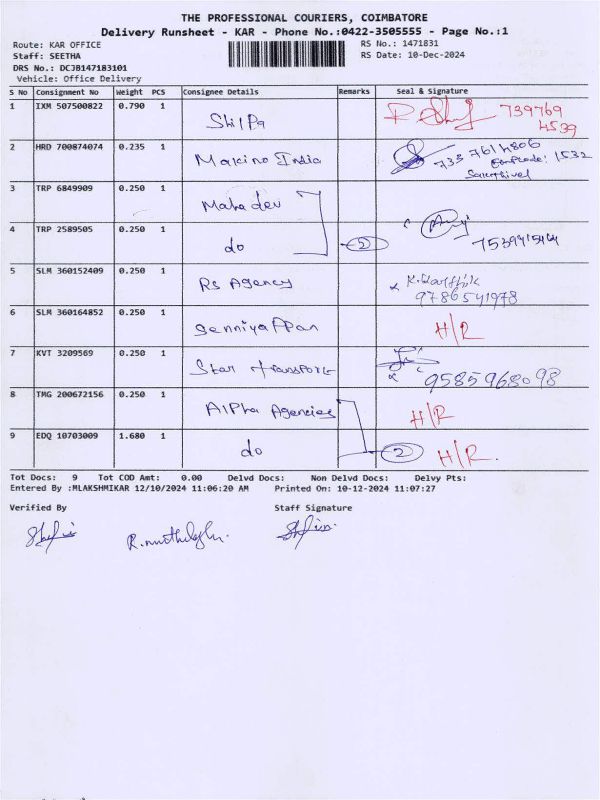 THE PROFESSIONAL COURIERS, COIMBATORE
Delivery Runsheet - KAR - Phone No.:0422-3505555 - Page No.:1
Route: KAR OFFICE
RS No.: 1471831
Staff: SEETHA
RS Date: 10-Dec-2024
DRS No.: DCJB147183101
Vehicle: Office Delivery
S No Consignment No Weight PCS Consignee Details Remarks Seal & Signature
1 IXM 507500822 0.790 1 Shilpa 739769
4539
2 HRD 700874074 0.235 1 Makino India 735 7614806
1532
Sakthivel
3 TRP 6849909 0.250 1 Mahadev
4 TRP 2589505 0.250 1 do 2
5 SLM 360152409 0.250 1 Rs Agency K. Karthik
9786541978
6 SLM 360164852 0.250 1 Senniyappan H/R
7 KVT 3209569 0.250 1 Star transport 9585968098
8 TMG 200672156 0.250 1 Alpha Agencies H/R
9 EDQ 10703009 1.680 1 do 2 H/R.
Tot Docs: 9 Tot COD Amt: 0.00 Delvd Docs: Non Delvd Docs: Delvy Pts:
Entered By :MLAKSHMIKAR 12/10/2024 11:06:20 AM Printed On: 10-12-2024 11:07:27
Verified By Staff Signature